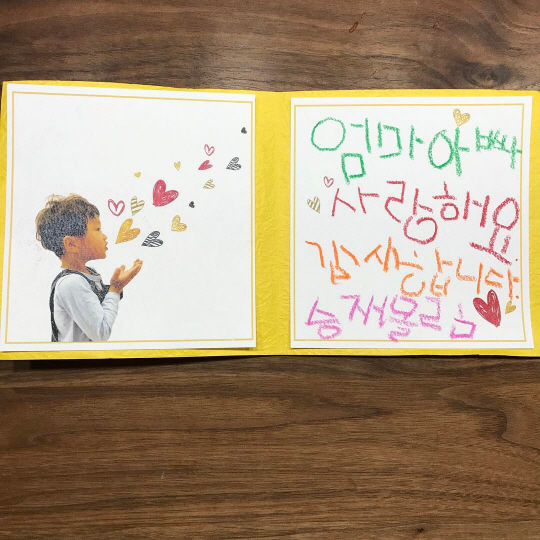 엄마아빠
사랑해요
감사합니다
승재올림